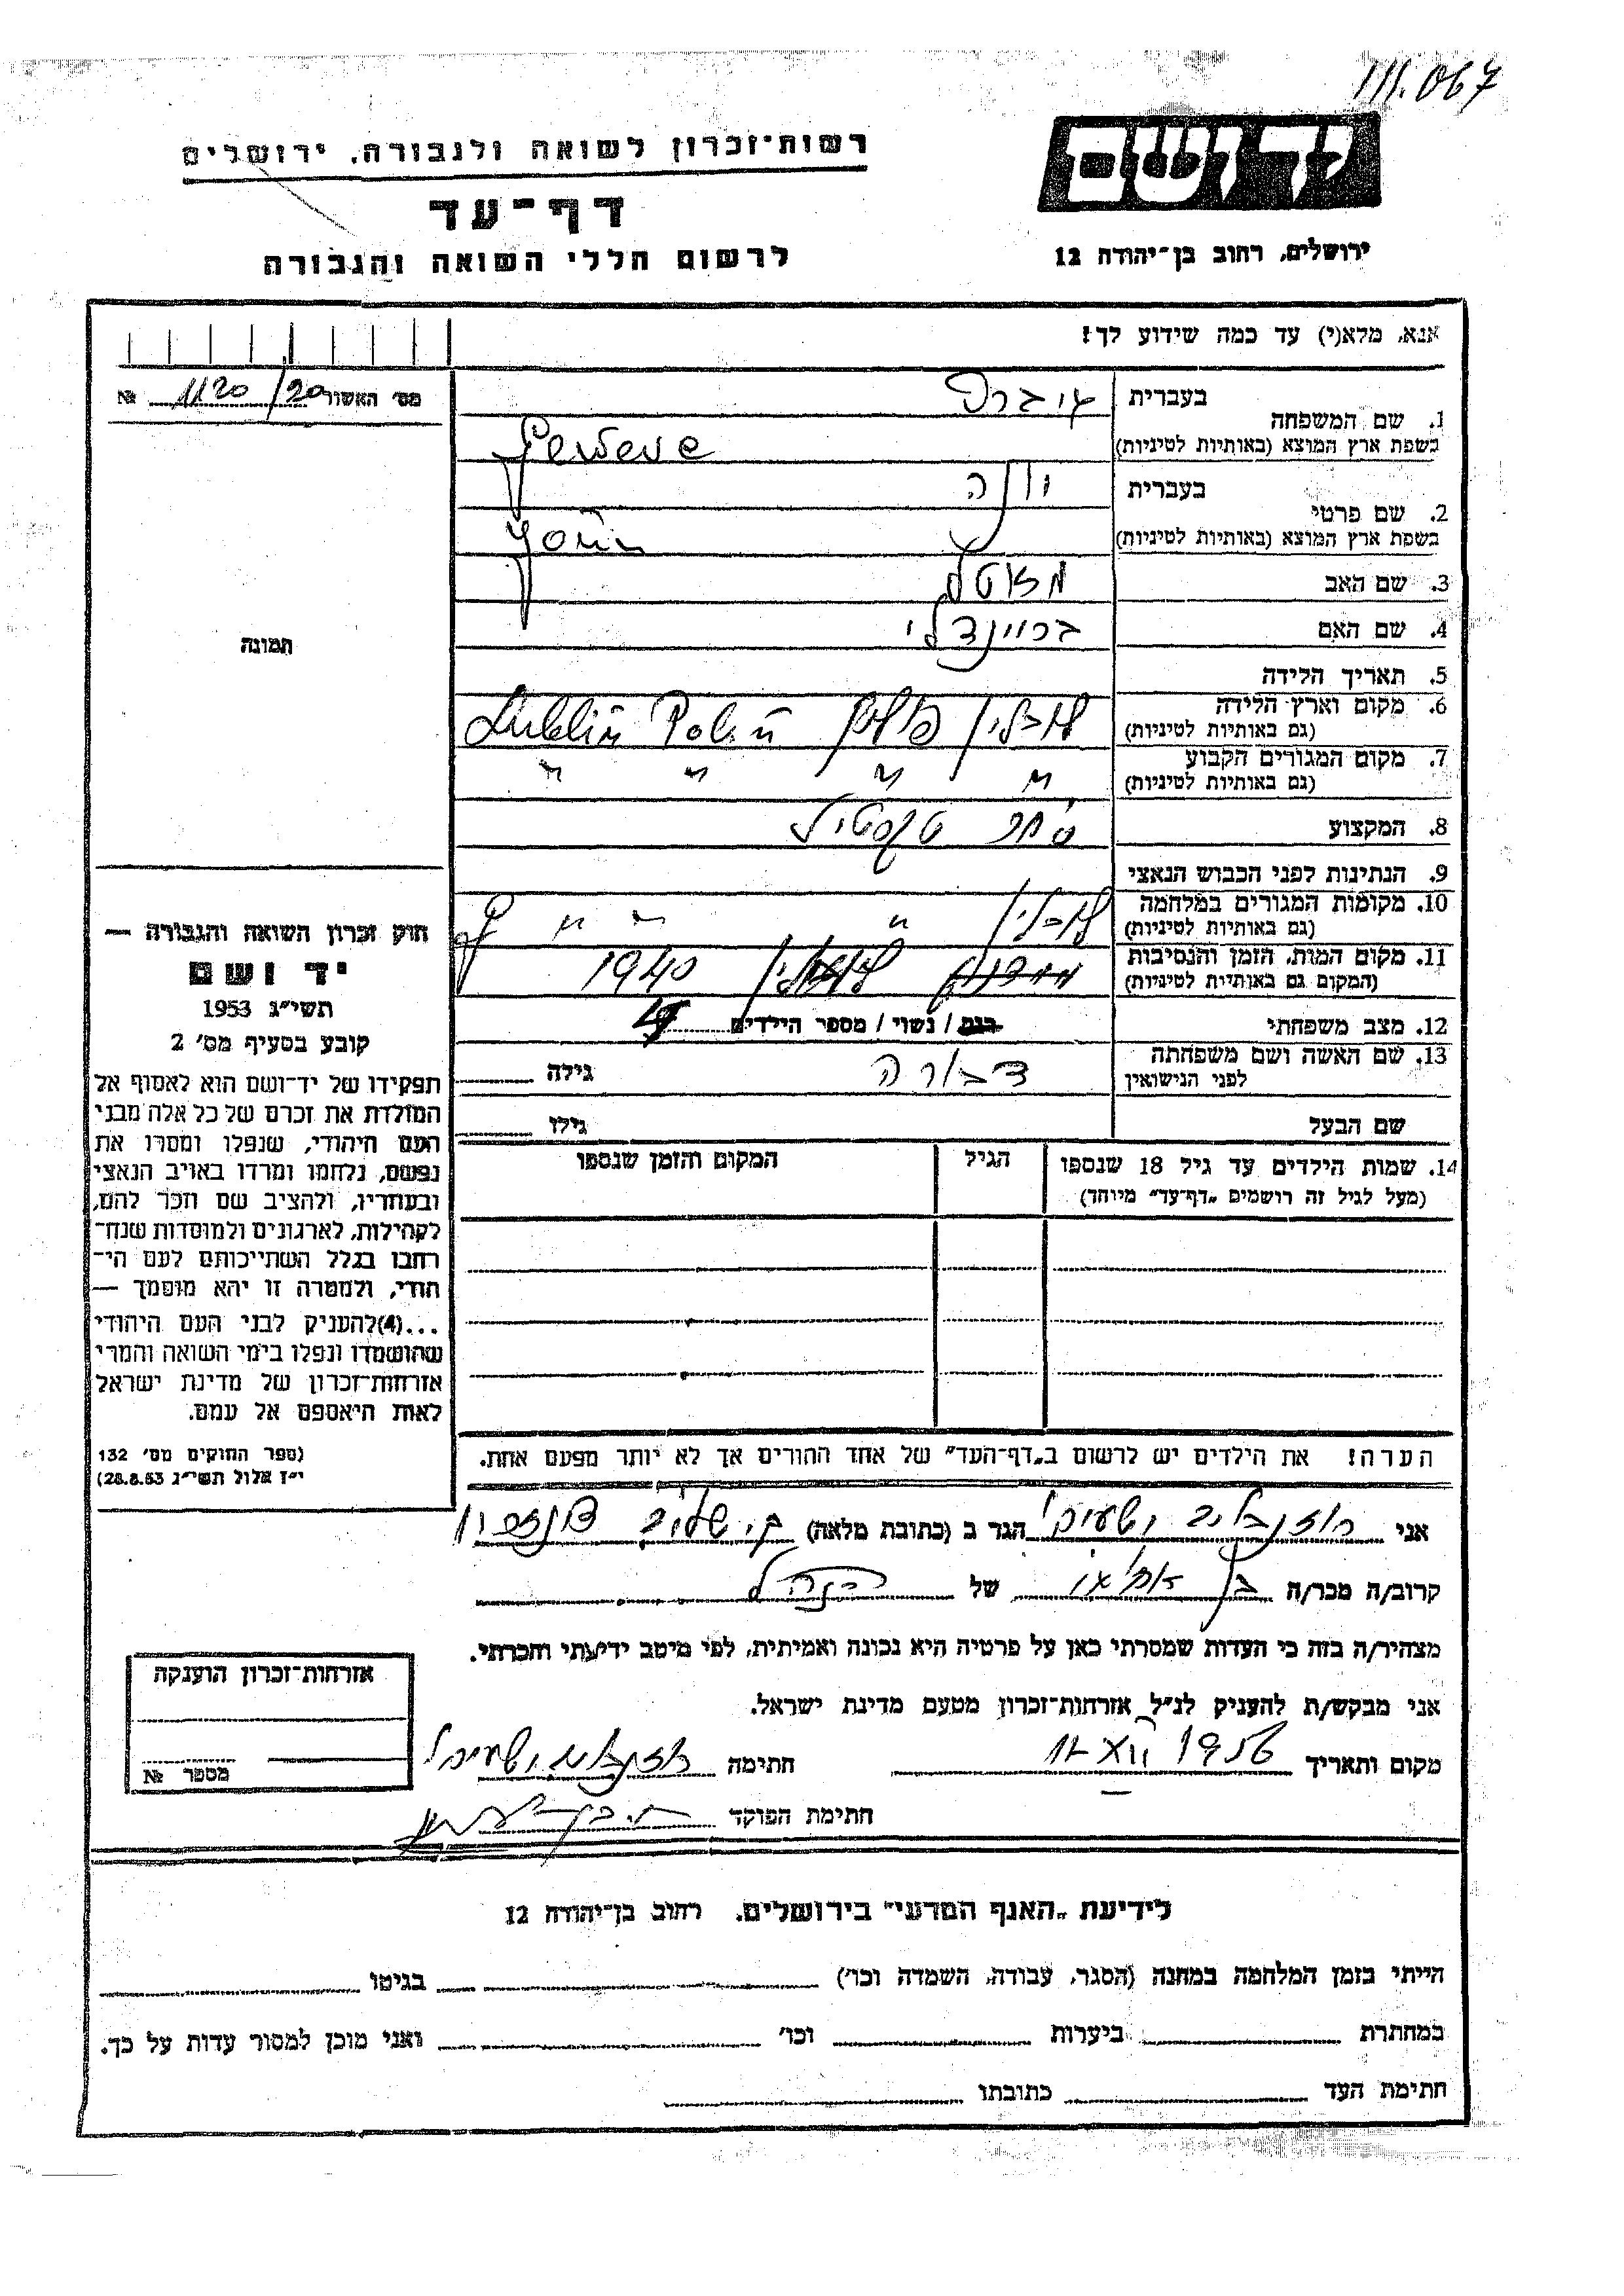 111.067
יד ושם
רשות־זכרון לשואה ולגבורה, ירושלים
דף־עד
לרשום חללי השואה והגבורה
ירושלים, רחוב בן־יהודה 12
אנא, מלא(י) עד כמה שידוע לך!
מס׳ האשור 1120/20 №
תמונה
1. שם המשפחה
בעברית
בשפת ארץ המוצא (באותיות לטיניות)
2. שם פרטי
בעברית יונה
בשפת ארץ המוצא (באותיות לטיניות)
3. שם האב
4. שם האם ברוינדלי
5. תאריך הלידה
6. מקום וארץ הלידה (גם באותיות לטיניות) לובלין פולין Lublin Polin
7. מקום המגורים הקבוע (גם באותיות לטיניות) " " " "
8. המקצוע סוחר טקסטיל
9. הנתינות לפני הכבוש הנאצי
10. מקומות המגורים במלחמה (גם באותיות לטיניות) לובלין " " "
11. מקום המות, הזמן והנסיבות (המקום גם באותיות לטיניות) 1940
12. מצב משפחתי רווק / נשוי / מספר הילדים
13. שם האשה ושם משפחתה לפני הנישואין דבורה גילה
שם הבעל גילו
14. שמות הילדים עד גיל 18 שנספו (מעל לגיל זה רושמים „דף־עד״ מיוחד)
הגיל
המקום והזמן שנספו
הערה! את הילדים יש לרשום ב„דף־העד״ של אחד ההורים אך לא יותר מפעם אחת.
חוק זכרון השואה והגבורה —
יד ושם
תשי״ג 1953
קובע בסעיף מס׳ 2
תפקידו של יד־ושם הוא לאסוף אל
המולדת את זכרם של כל אלה מבני
העם היהודי, שנפלו ומסרו את
נפשם, נלחמו ומרדו באויב הנאצי
ובעוזריו, ולהציב שם וזכר להם,
לקהילות, לארגונים ולמוסדות שנח־
רבו בגלל השתייכותם לעם הי־
הודי, ולמטרה זו יהא מוסמך —
...(4)להעניק לבני העם היהודי
שהושמדו ונפלו בימי השואה והמרי
אזרחות־זכרון של מדינת ישראל
לאות היאספם אל עמם.
(ספר החוקים מס׳ 132
י״ז אלול תשי״ג 28.8.53)
אני רוזנבלום הגר ב (כתובת מלאה)
קרוב/ה מכר/ה בן של
מצהיר/ה בזה כי העדות שמסרתי כאן על פרטיה היא נכונה ואמיתית, לפי מיטב ידיעתי והכרתי.
אני מבקש/ת להעניק לנ״ל אזרחות־זכרון מטעם מדינת ישראל.
מקום ותאריך 1956 חתימה
חתימת הפוקד
אזרחות־זכרון הוענקה
מספר №
לידיעת „האגף המדעי״ בירושלים, רחוב בן־יהודה 12
הייתי בזמן המלחמה במחנה (הסגר, עבודה, השמדה וכו׳) בגיטו
במחתרת ביערות וכו׳ ואני מוכן למסור עדות על כך.
חתימת העד כתובתו